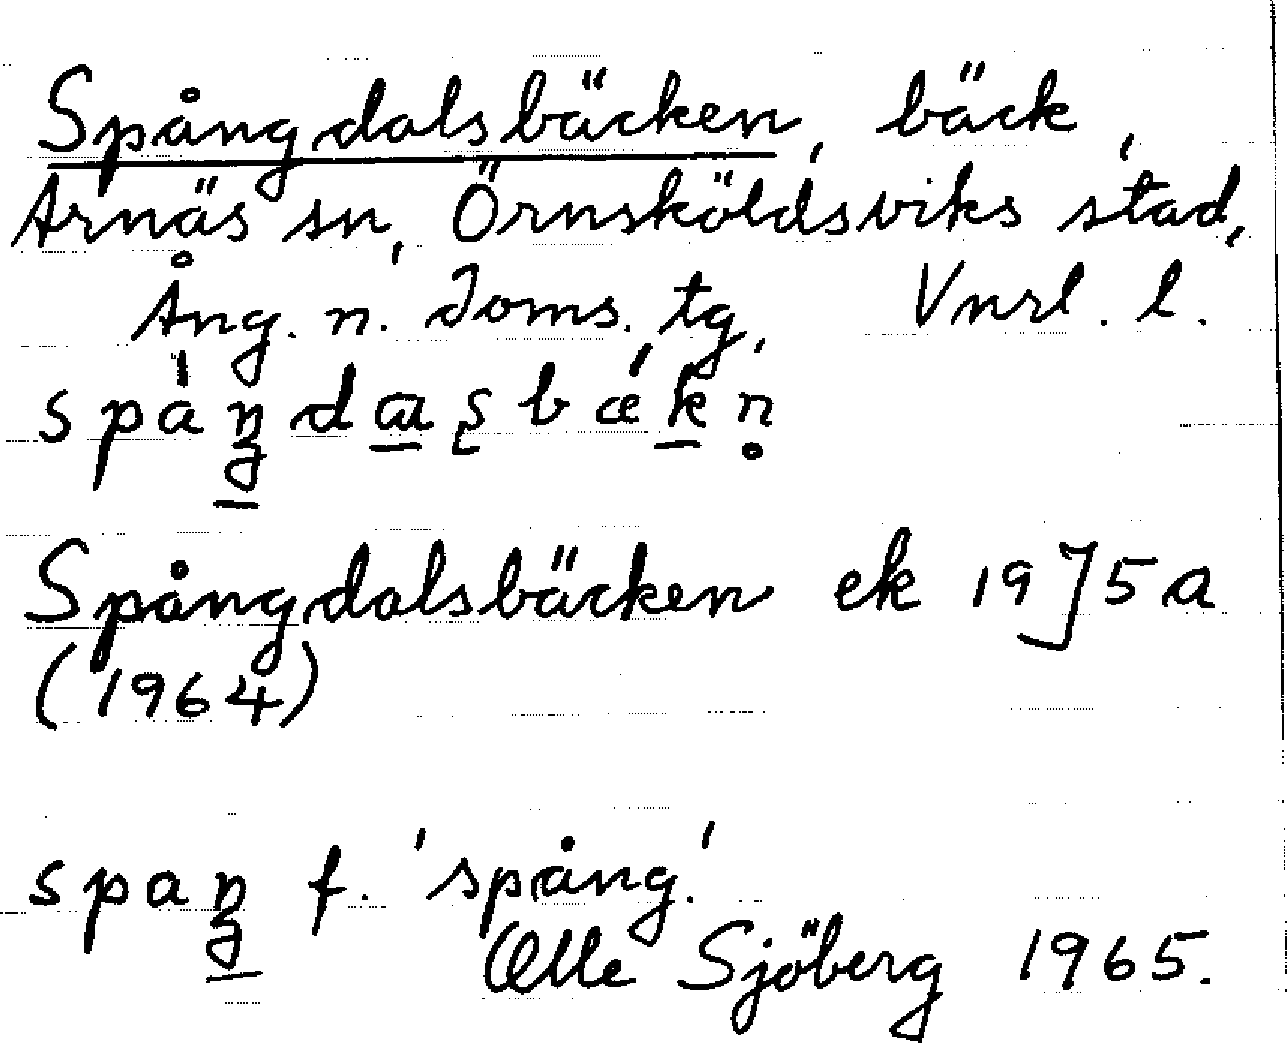 Spångdalsbäcken, bäck,
Arnäs sn, Örnsköldsviks stad,
Ång. n. doms. tg, Vnrl. l.
Spångdalsbäcken ek 19J5a
(1964)
f. 'spång.'
Olle Sjöberg 1965.